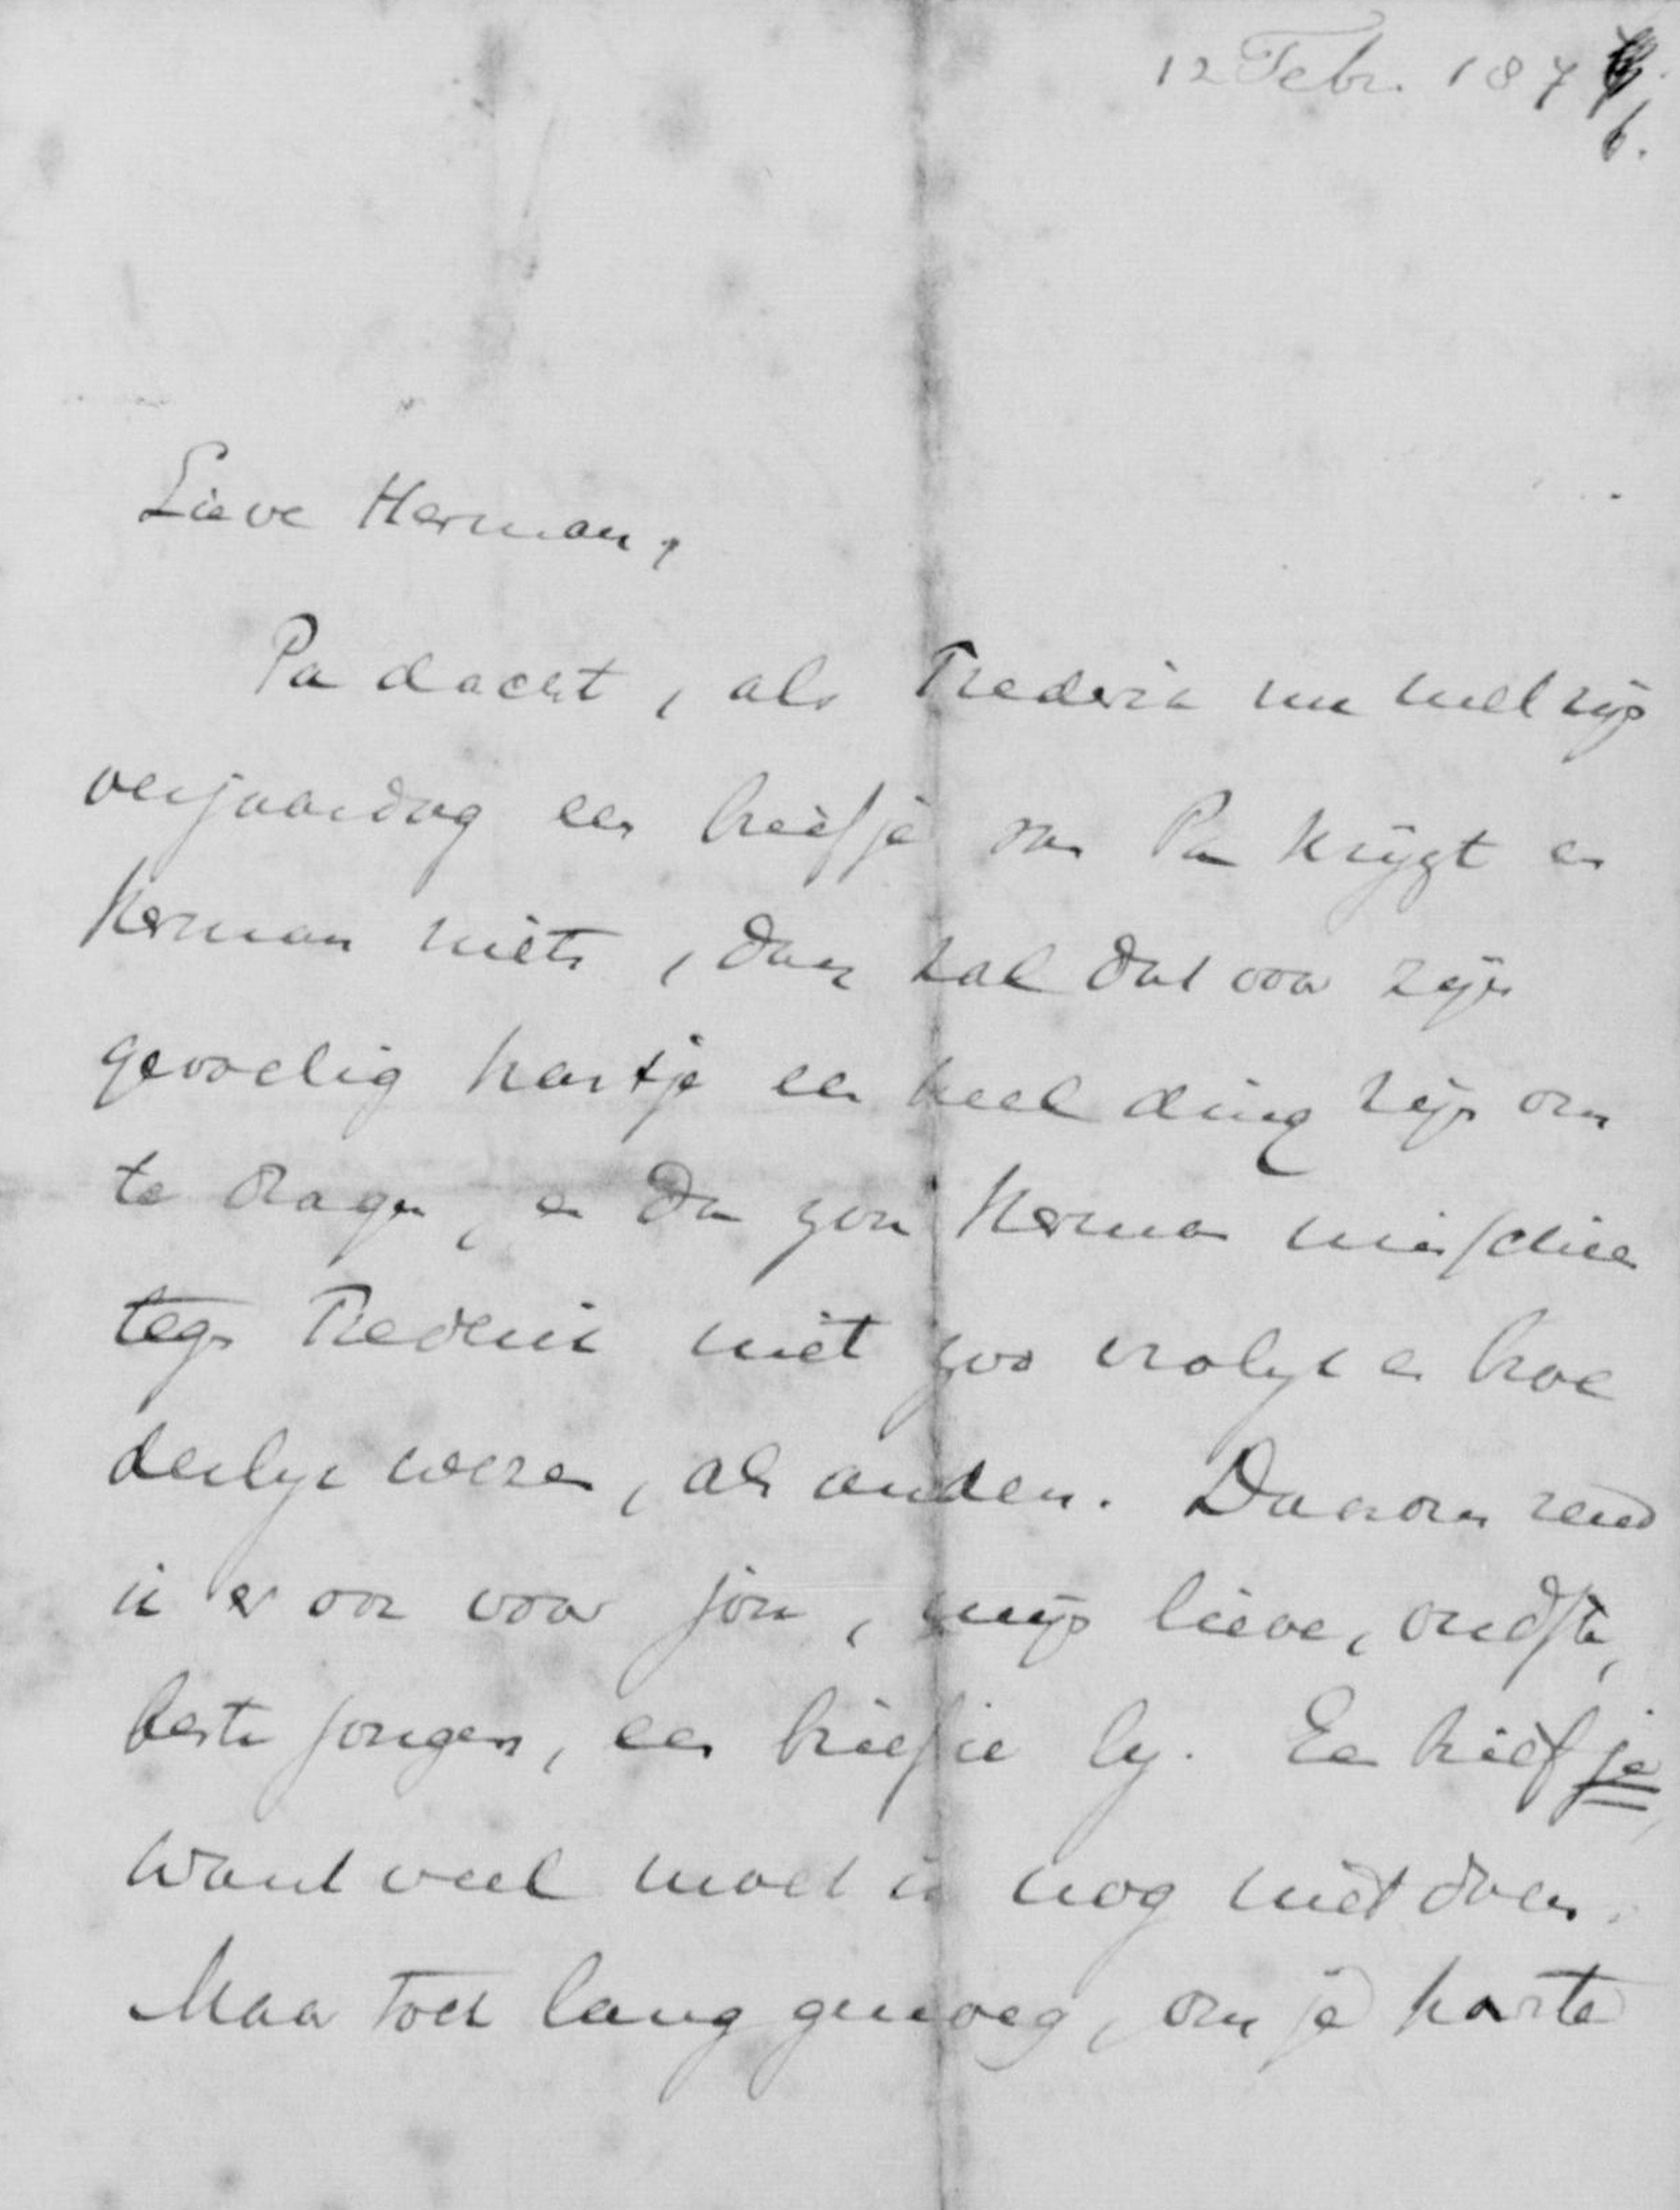 12 Febr. 187
6.
Lieve Herman,
Pa dacht, als Frederik nu met zijn
verjaardag een briefje van Pa krijgt en
Herman niets, dan zal dat voor zijn
gevoelig hartje een heel ding zijn om
te dragen, en dan zou Herman misschien
tegen Frederik niet zoo vrolijk en broe
derlijk wezen, als anders. Daarom zend
ik er ook voor jou, mijn lieve, oudste,
beste jongen, een briefje bij. Een briefje,
want veel moet ik nog niet doen.
Maar toch lang genoeg, om je harte